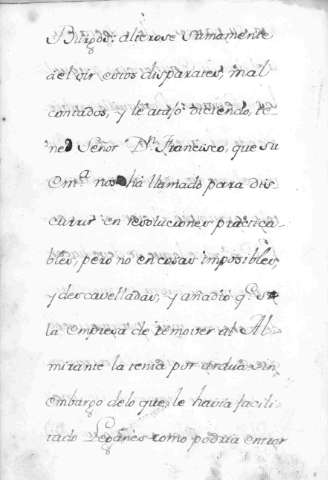 Burgos: alterose sumamente
del oir estos disparates, mal
contados, y le atajó diciendo, te-
ned Señor Dn. Francisco, que su
Em.ª nos há llamado para dis
currir en resoluciones practica-
bles, pero no en cosas imposibles,
y descavelladas, y añadió q.e si
la empresa de remover al Al-
mirante la tenia por ardua sin
embargo de lo que le havia facili
tado Leganés como podria entrar